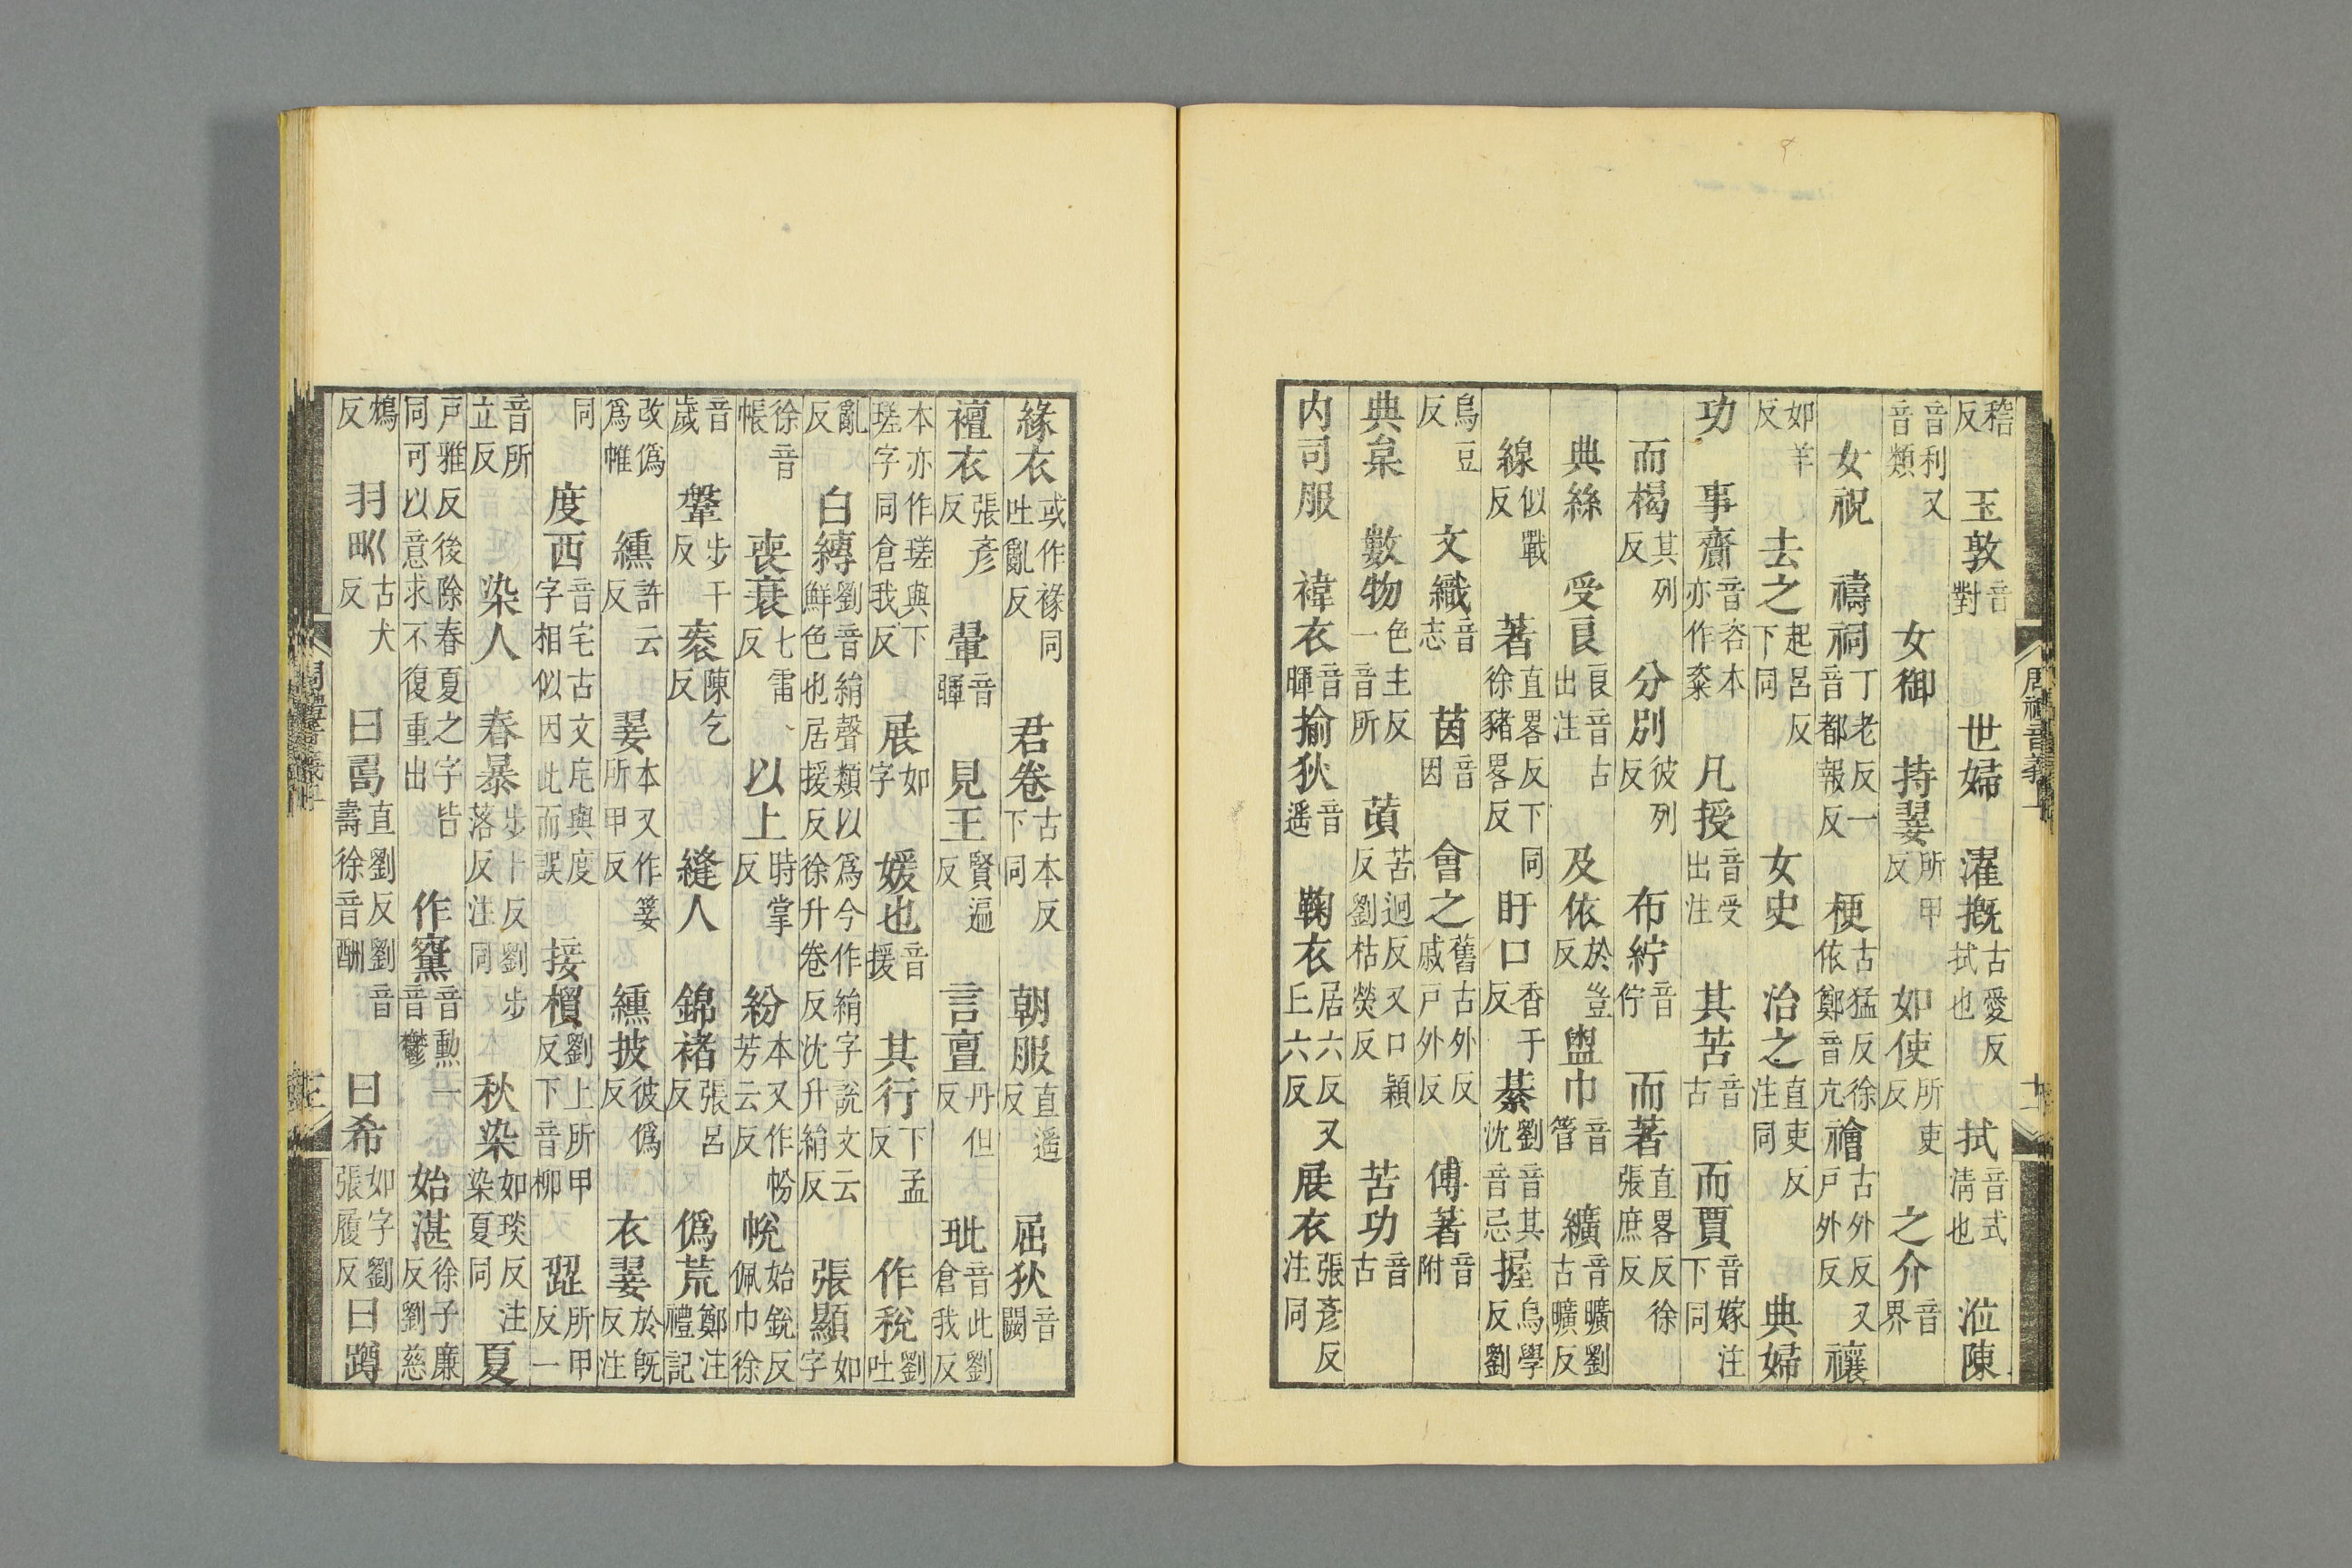 稽反 玉敦音對 世婦 濯摡古愛反拭也 拭音式清也 涖陳
音利又音類 女御 持翣所甲反 如使所吏反 之介音界
女祝 禱祠丁老反一音都報反 梗古猛反徐依鄭音亢 禬古外反又戶外反 禳
如羊反 去之起呂反下同 女史 治之直吏反注同 典婦
功 事齎音咨本亦作齍 凡授音受出注 其苦音古 而賈音嫁注下同
而楬其列反 分別彼列反 布紵音佇 而著直畧反徐張庶反
典絲 受良良音古出注 及依於豈反 盥巾音管 纊音曠劉古曠反
線似戰反 著直畧反下同徐豬畧反 盱口香于反 綦劉音其沈音忌 握烏學反劉
烏豆反 文織音志 茵音因 會之舊古外反戚戶外反 傅著音附
典枲 數物色主反一音所 䔛苦迥反又口穎反劉枯熒反 苦功音古
内司服 褘衣音暉 揄狄音遥 鞠衣居六反又丘六反 展衣張彥反注同
緣衣或作褖同吐亂反 君卷古本反下同 朝服直遥反 屈狄音闕
襢衣張彥反 翬音暉 見王賢遍反 言亶丹但反 玼音此劉倉我反
本亦作瑳與下瑳字同倉我反 展如字 媛也音援 其行下孟反 作稅劉吐
亂反 白縳劉音絹聲類以爲今作絹字說文云鮮色也居援反徐升卷反沈升絹反 張顯如字
徐音帳 喪衰七雷反 以上時掌反 紛本又作帉芳云反 帨始銳反佩巾徐
音歲 鞶步干反 袠陳乞反 縫人 錦褚張呂反 僞荒鄭注禮記
改僞爲帷 纁許云反 翣本又作萋所甲反 纁披彼僞反 衣翣於旣反注
同 度西音宅古文㡯與度字相似因此而誤 接檟劉上所甲反下音柳 歰所甲反一
音所立反 染人 春暴步卜反劉步落反注同 秋染如琰反注染夏同 夏
戶雅反後除春夏之字皆同可以意求不復重出 作窴音勲一音鬱 始湛徐子廉反劉慈
鴆反 羽畎古犬反 曰𠷎直劉反劉音壽徐音酬 曰希如字劉張履反 曰蹲
周禮音義上
十一
周禮音義上
十二